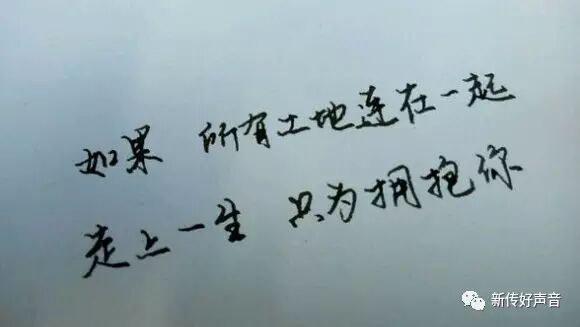 如果 所有土地连在一起
走上一生 只为拥抱你
新传好声音